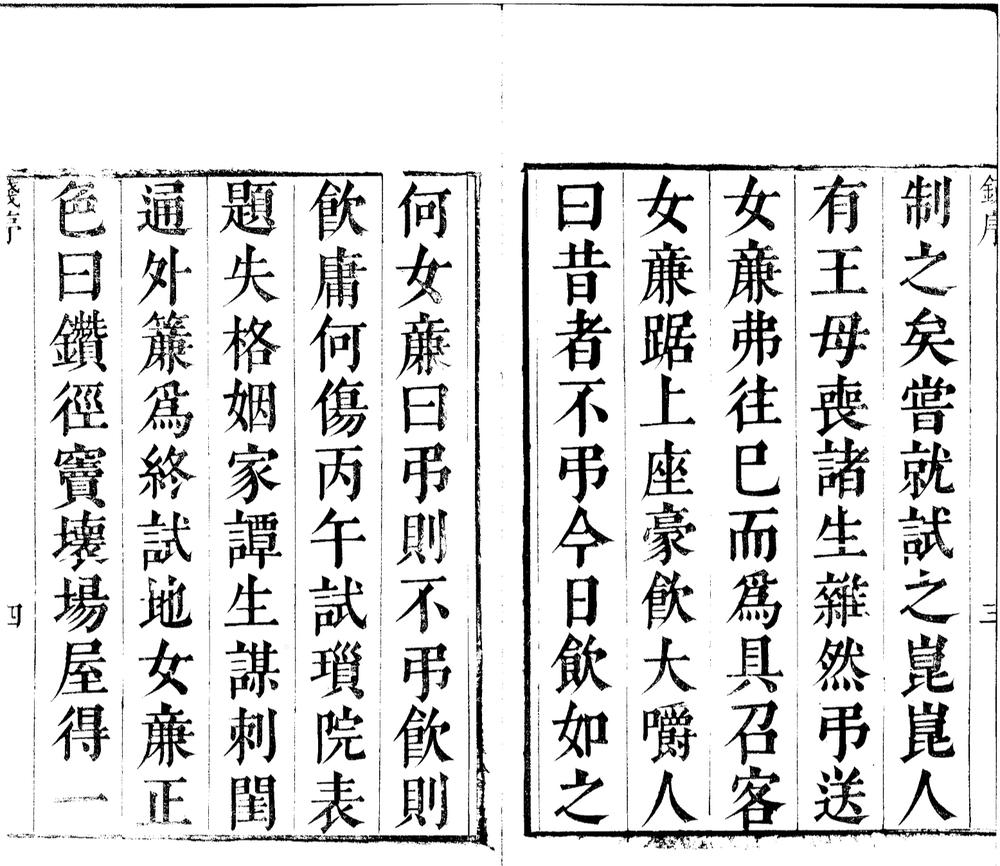 制之矣嘗就試之崑崑人
有王母喪諸生雜然弔送
女亷弗往巳而爲具召客
女亷踞上座豪飮大嚼人
曰昔者不弔今日飮如之
何女亷曰弔則不弔飮則
飮庸何傷丙午試瑣院表
題失格姻家譚生謀刺閨
通外簾爲終試地女亷正
色曰鑽徑竇壞場屋得一
三
四